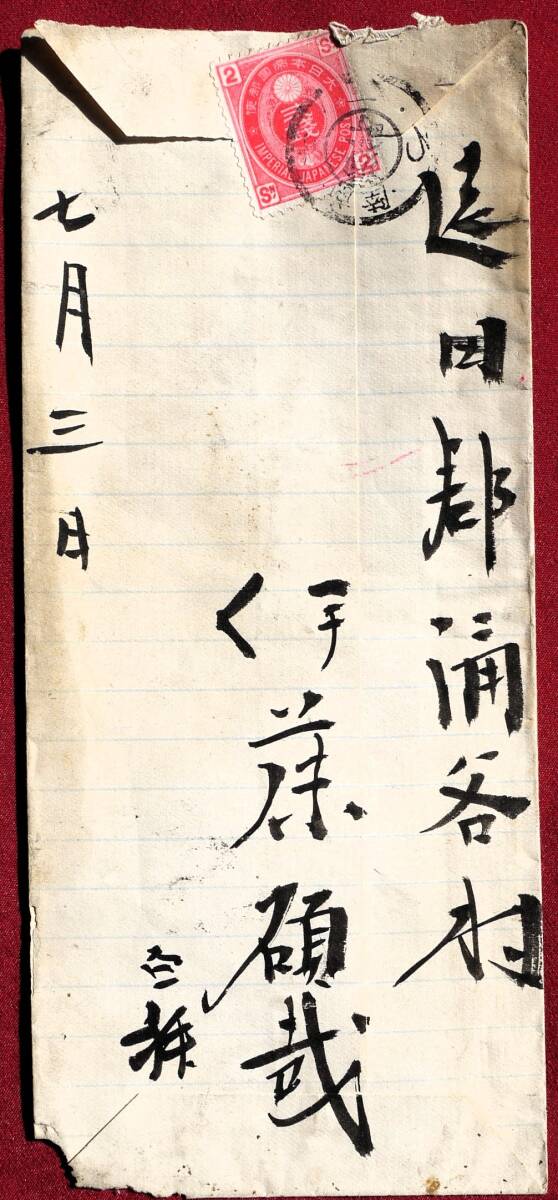 遠田郡涌谷村
伊藤碩哉
七月三日
大日本帝國郵便
2
Sn
二錢
IMPERIAL JAPANESE POST
2
Sn